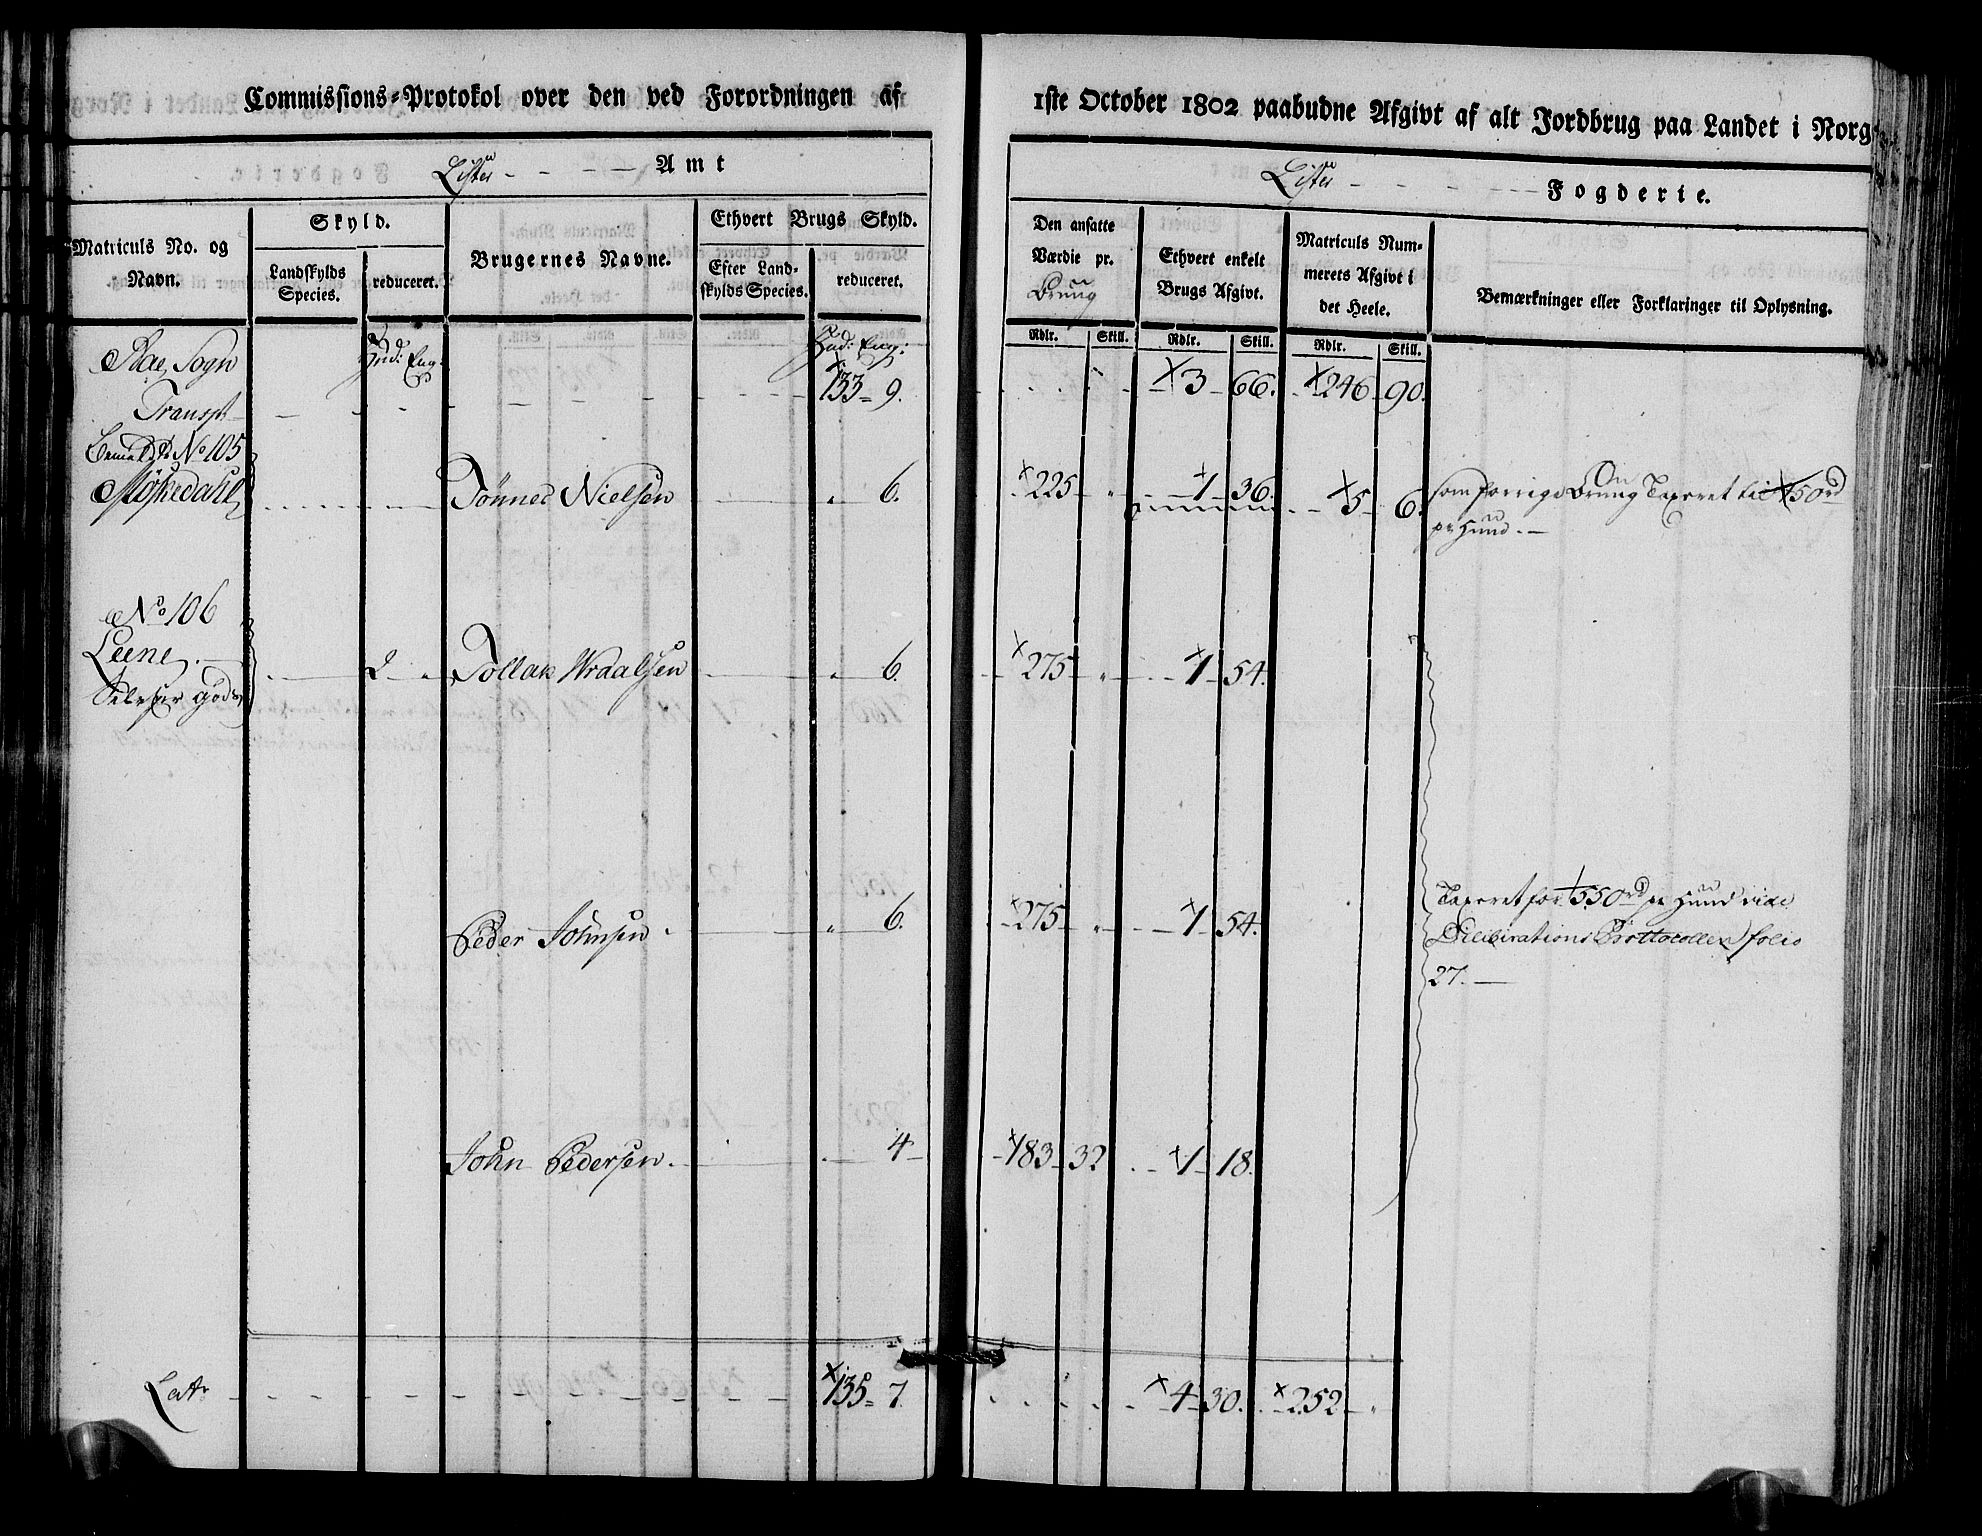 Commissions-Protokol over den ved Forordningen af
1ste October 1802 paabudne Afgivt af alt Jordbrug paa Landet i Norg
Lister Amt
Lister Fogderie.
Matriculs No. og Navn.
Skyld.
Landskylds Species.
reduceret.
Brugernes Navne.
Ethvert Brugs Skyld.
Efter Landskylds Species.
reduceret.
Den ansatte Værdie pr. Bruug
Ethvert enkelt Brugs Afgivt.
Matriculs Nummerets Afgivt i det Heele.
Bemærkninger eller Forklaringer til Oplysning.
Rdlr. Skill. Rdlr. Skill. Rdlr. Skill.
Sogn Hud: Eng. Hud: Eng:
Transpt 133 9. 3 66. 246 90.
No 105
Tönnes Nielsen 6. 225 1 36. 5 6. som forrige Bruug Taxeret til 450 rd
pr Hud.
No 106
Leene. 2 Tollak Wraalsen 6. 275 1 54.
Peder Johnsen 6. 275 1 54. Taxeret for 550 rd pr Huud vide
Deliberations Prottocollen folio
27.
John Pedersen. 4 183 32 1 18.
Latr 135 7. 4 30. 252